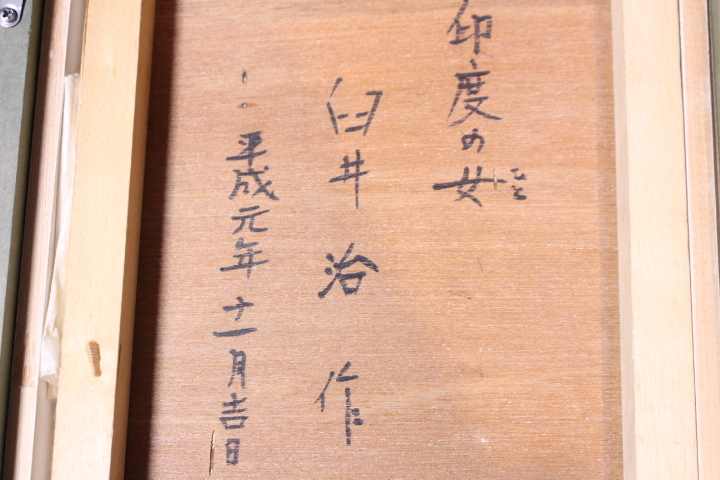 印度の女
臼井 治 作
平成元年十一月吉日